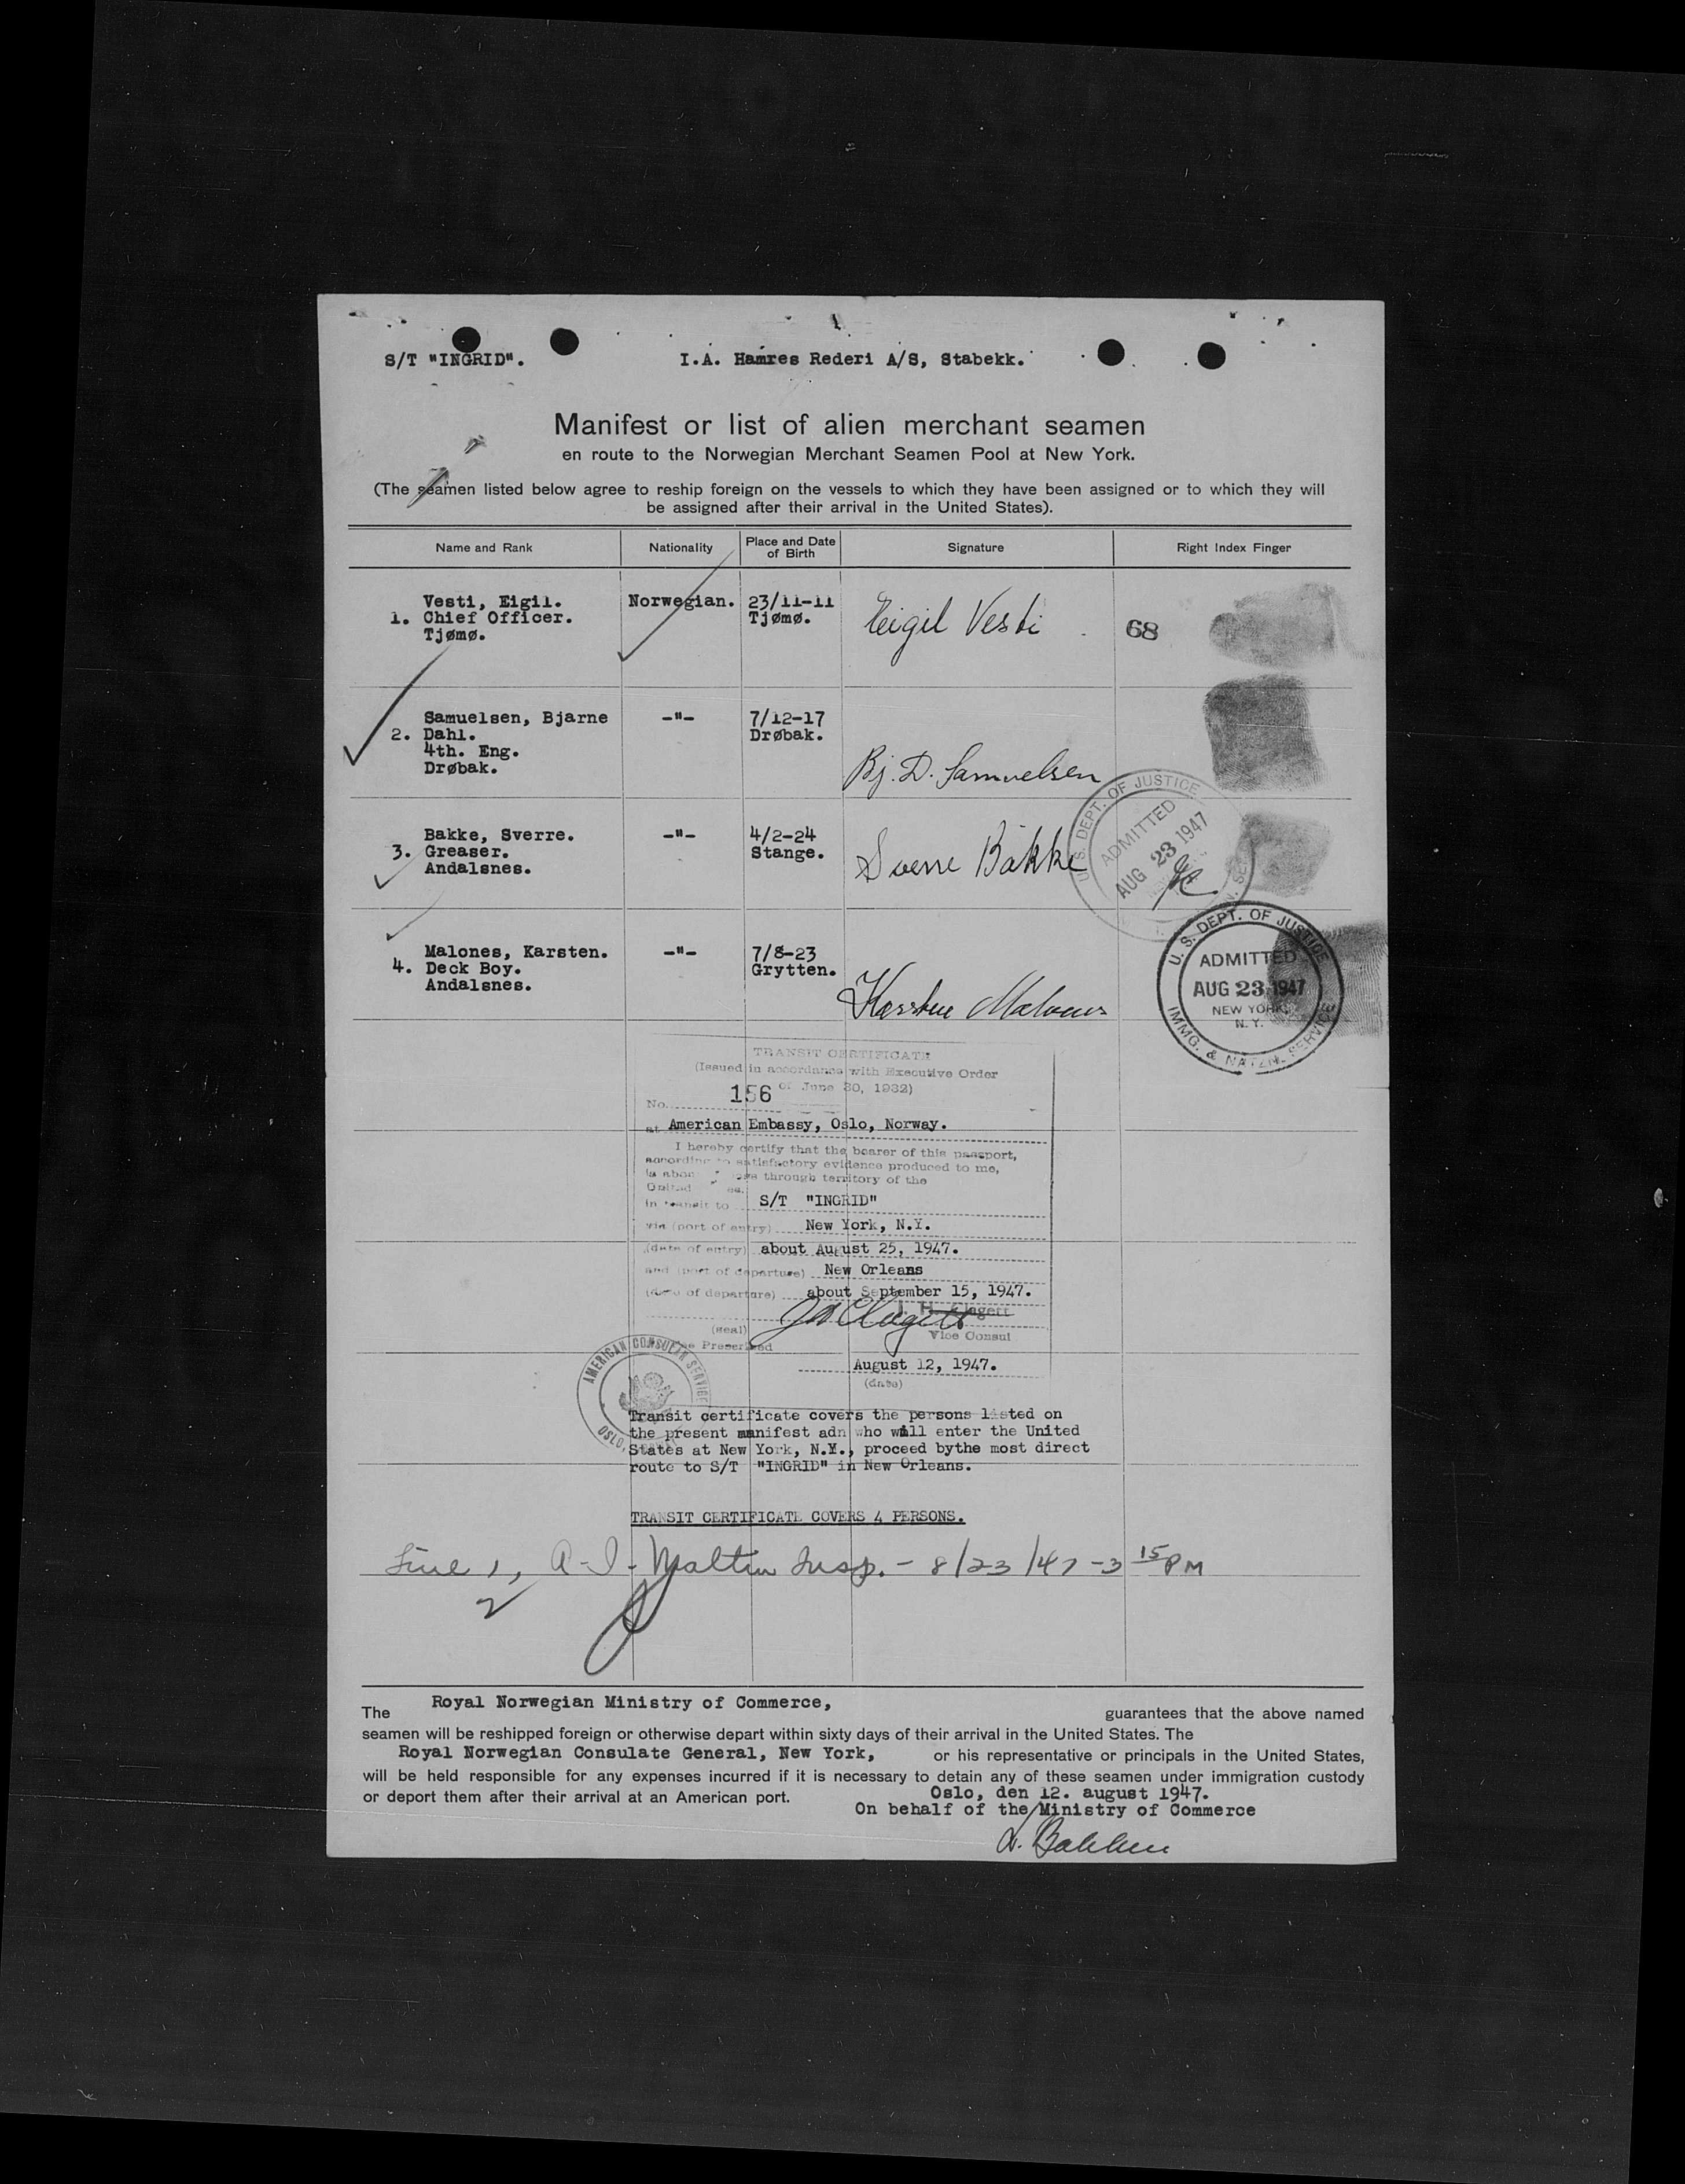 S/T "INGRID". I.A. Hamres Rederi A/S, Stabekk.
Manifest or list of alien merchant seamen
en route to the Norwegian Merchant Seamen Pool at New York.
(The seamen listed below agree to reship foreign on the vessels to which they have been assigned or to which they will
be assigned after their arrival in the United States).
Name and Rank Nationality Place and Date of Birth Signature Right Index Finger
Vesti, Eigil. Norwegian. 23/11-11
1. Chief Officer. Tjømø. Eigil Vesti 68
Tjømø.
Samuelsen, Bjarne -"- 7/12-17
2. Dahl. Drøbak.
4th. Eng.
Drøbak. Bj. D. Samuelsen
U.S. DEPT. OF JUSTICE
ADMITTED
AUG 23 1947
Bakke, Sverre. -"- 4/2-24
3. Greaser. Stange. Sverre Bakke
Andalsnes.
U. S. DEPT. OF JUSTICE
ADMITTED
AUG 23 1947
NEW YORK,
N. Y.
IMMG. & NATZN. SERVICE
Malones, Karsten. -"- 7/8-23
4. Deck Boy. Grytten.
Andalsnes. Karsten Malones
TRANSIT CERTIFICATE
(Issued in accordance with Executive Order
of June 30, 1932)
No. 156
at American Embassy, Oslo, Norway.
I hereby certify that the bearer of this passport,
according to satisfactory evidence produced to me,
is about through territory of the
United
in transit to S/T "INGRID"
via (port of entry) New York, N.Y.
(date of entry) about August 25, 1947.
and (port of departure) New Orleans
(date of departure) about September 15, 1947.
J. H. Clagett
(seal) Vice Consul
August 12, 1947.
(date)
AMERICAN CONSULAR SERVICE
OSLO,
Transit certificate covers the persons listed on
the present manifest adn who will enter the United
States at New York, N.Y., proceed bythe most direct
route to S/T "INGRID" in New Orleans.
TRANSIT CERTIFICATE COVERS 4 PERSONS.
Line 1, Insp. - 8/23/47 - 3 15 PM
2
The Royal Norwegian Ministry of Commerce, guarantees that the above named
seamen will be reshipped foreign or otherwise depart within sixty days of their arrival in the United States. The
Royal Norwegian Consulate General, New York, or his representative or principals in the United States,
will be held responsible for any expenses incurred if it is necessary to detain any of these seamen under immigration custody
or deport them after their arrival at an American port. Oslo, den 12. august 1947.
On behalf of the Ministry of Commerce